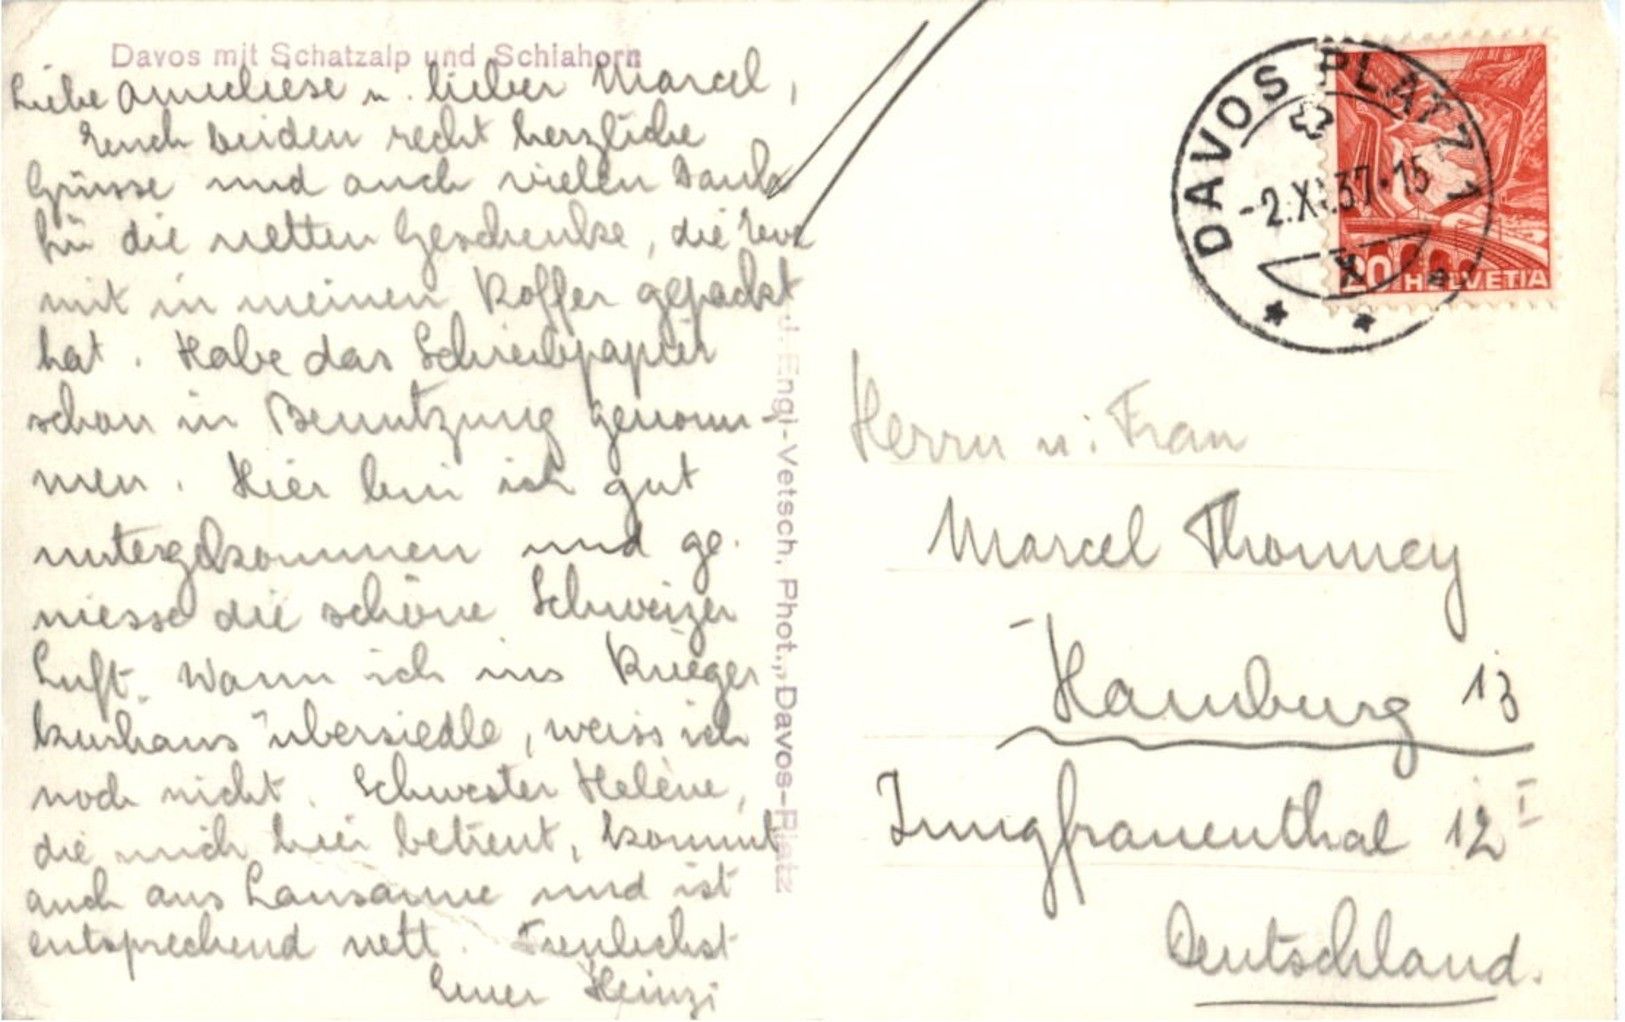 Davos mit Schatzalp und Schiahorn
Liebe Anneliese u. lieber Marcel,
Euch beiden recht herzliche
Grüsse und auch vielen Dank
für die netten Geschenke, die Eva
mit in meinen Koffer gepackt
hat. Habe das Schreibpapier
schon in Benutzung genom-
men. Hier bin ich gut
untergekommen und ge-
niesse die schöne Schweizer
Luft. Wann ich ins Krieger
kurhaus übersiedle, weiss ich
noch nicht. Schwester Helène,
die mich hier betreut, kommt
auch aus Lausanne und ist
entsprechend nett. Treulichst
Euer Heinzi
J. Engi-Vetsch, Phot., Davos-Platz
DAVOS PLATZ 1
-2.X 37-15
20 HELVETIA
Herrn u. Frau
Marcel Thonney
Hamburg 13
Jungfrauenthal 12 I
Deutschland.